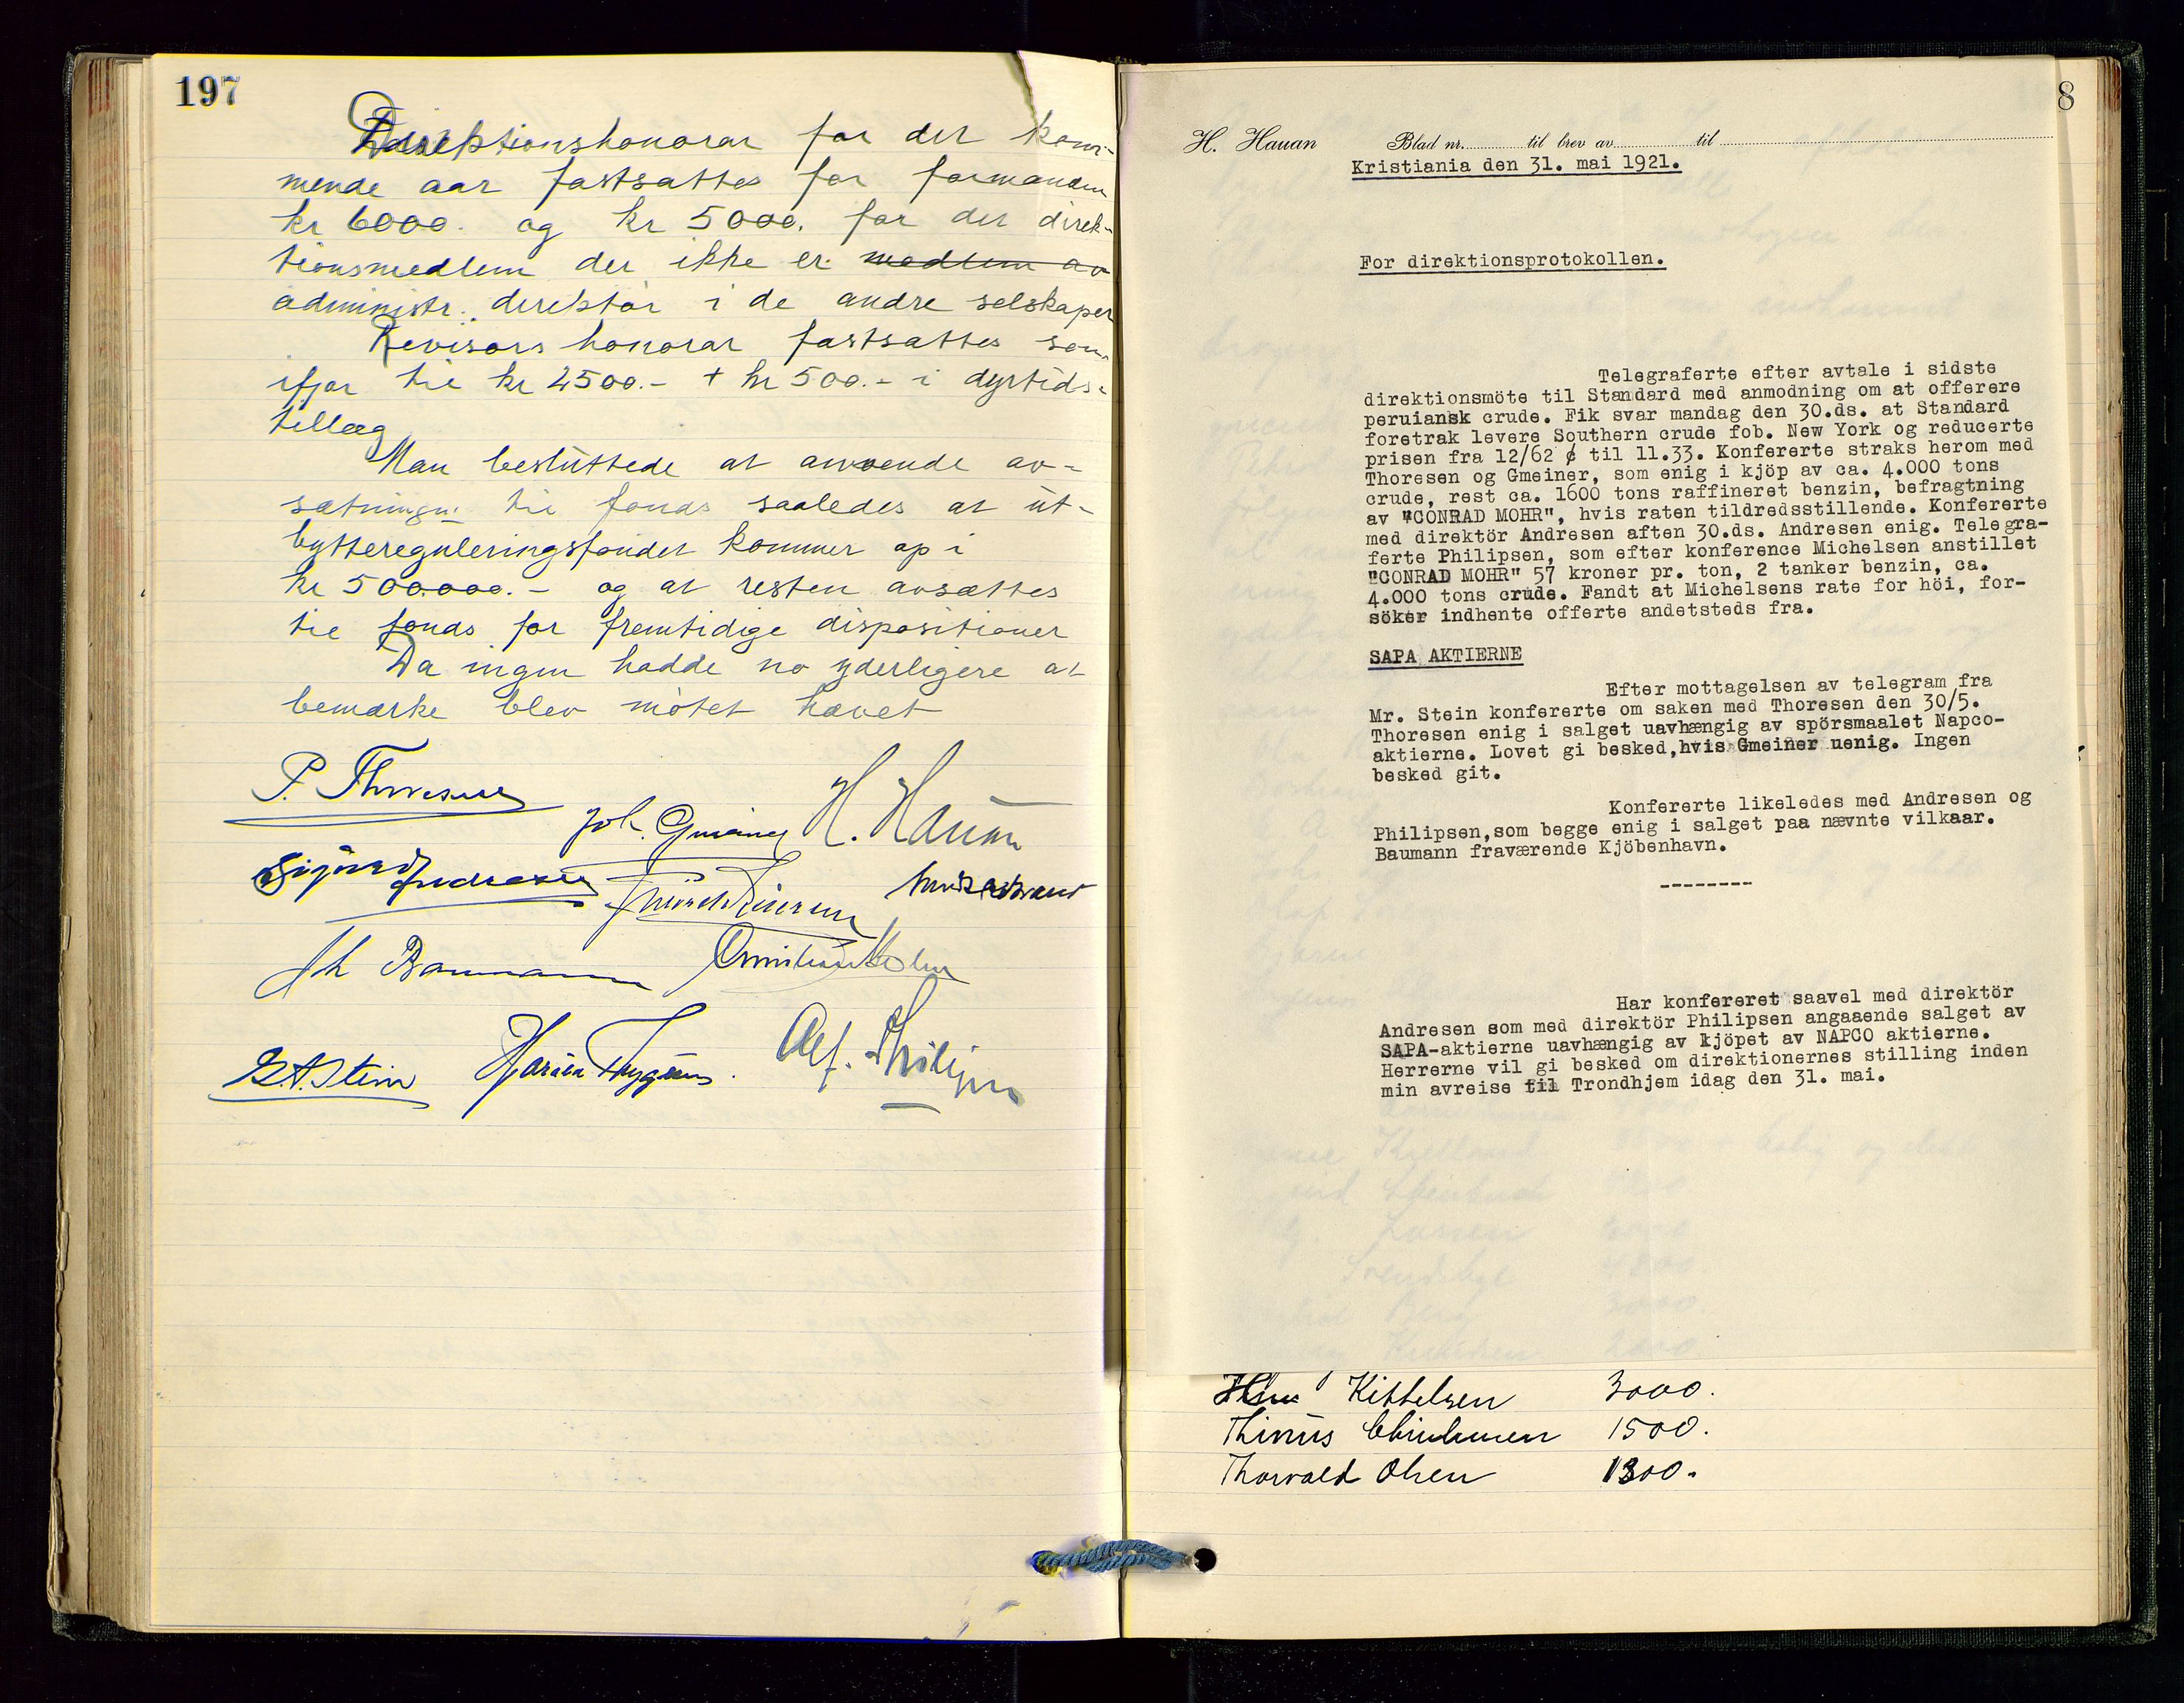 197
Direktionshonorar for det kom-
mende aar fastsattes for formanden
kr 6000. og kr 5000. for det direk-
tionsmedlem der ikke er medlem av
administr. direktör i de andre selskaper
Revisors honorar fastsattes som
ifjor til kr 2500.- + kr 500.- i dyrtids-
tillæg
Man besluttede at anvende av-
sætningen til fonds saaledes at ut-
byttereguleringsfondet kommer op i
kr 500.000.- og at resten avsættes
til fonds for fremtidige dispositioner
Da ingen hadde no yderligere at
bemærke blev mötet hævet
P. Thoresen
Joh. Gmeiner H. Hauan
Sigurd Andresen
Th Baumann
E. A. Stein
Alf. Philipsen
8
H. Hauan Blad nr. til brev av til
Kristiania den 31. mai 1921.
For direktionsprotokollen.
Telegraferte efter avtale i sidste
direktionsmöte til Standard med anmodning om at offerere
peruiansk crude. Fik svar mandag den 30.ds. at Standard
foretrak levere Southern crude fob. New York og reducerte
prisen fra 12/62 ¢ til 11.33. Konfererte straks herom med
Thoresen og Gmeiner, som enig i kjöp av ca. 4.000 tons
crude, rest ca. 1600 tons raffineret benzin, befragtning
av "CONRAD MOHR", hvis raten tildredsstillende. Konfererte
med direktör Andresen aften 30.ds. Andresen enig. Telegra-
ferte Philipsen, som efter konference Michelsen anstillet
"CONRAD MOHR" 57 kroner pr. ton, 2 tanker benzin, ca.
4.000 tons crude. Fandt at Michelsens rate for höi, for-
söker indhente offerte andetsteds fra.
SAPA AKTIERNE
Efter mottagelsen av telegram fra
Mr. Stein konfererte om saken med Thoresen den 30/5.
Thoresen enig i salget uavhængig av spörsmaalet Napco-
aktierne. Lovet gi besked,hvis Gmeiner uenig. Ingen
besked git.
Konfererte likeledes med Andresen og
Philipsen,som begge enig i salget paa nævnte vilkaar.
Baumann fraværende Kjöbenhavn.
---------
Har konfereret saavel med direktör
Andresen som med direktör Philipsen angaaende salget av
SAPA-aktierne uavhængig av kjöpet av NAPCO aktierne.
Herrerne vil gi besked om direktionernes stilling inden
min avreise til Trondhjem idag den 31. mai.
Kittelsen 3000.
Thinius Christensen 1500.
Thorvald Olsen 1300.